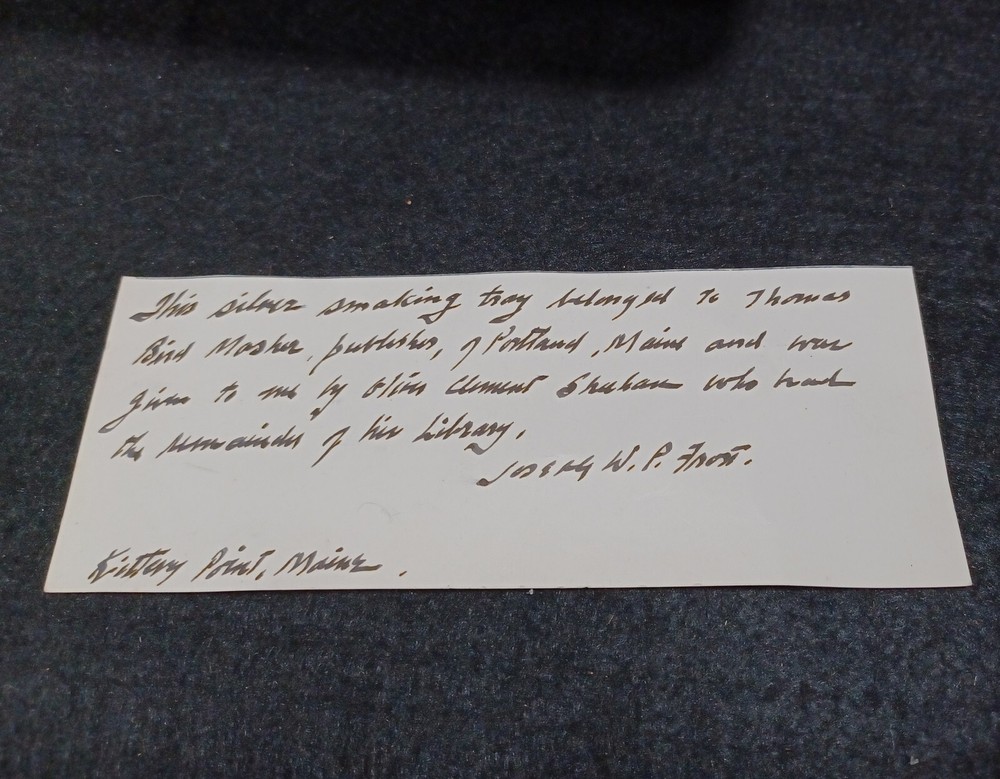 This silver smoking tray belonged to Thomas
Bird Mosher, publisher, of Portland, Maine and was
given to me by Oliver Clement Sheean who had
the remainder of his Library.
Joseph W. P. Frost.
Kittery Point, Maine.